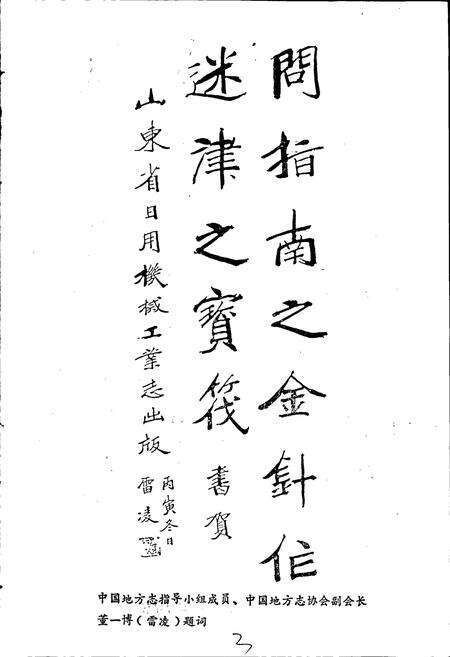 問指南之金針作
迷津之寶筏 書賀
山東省日用機械工業志出版
丙寅冬日
雷凌
中国地方志指导小组成员、中国地方志协会副会长
董一博（雷凌）题词
3